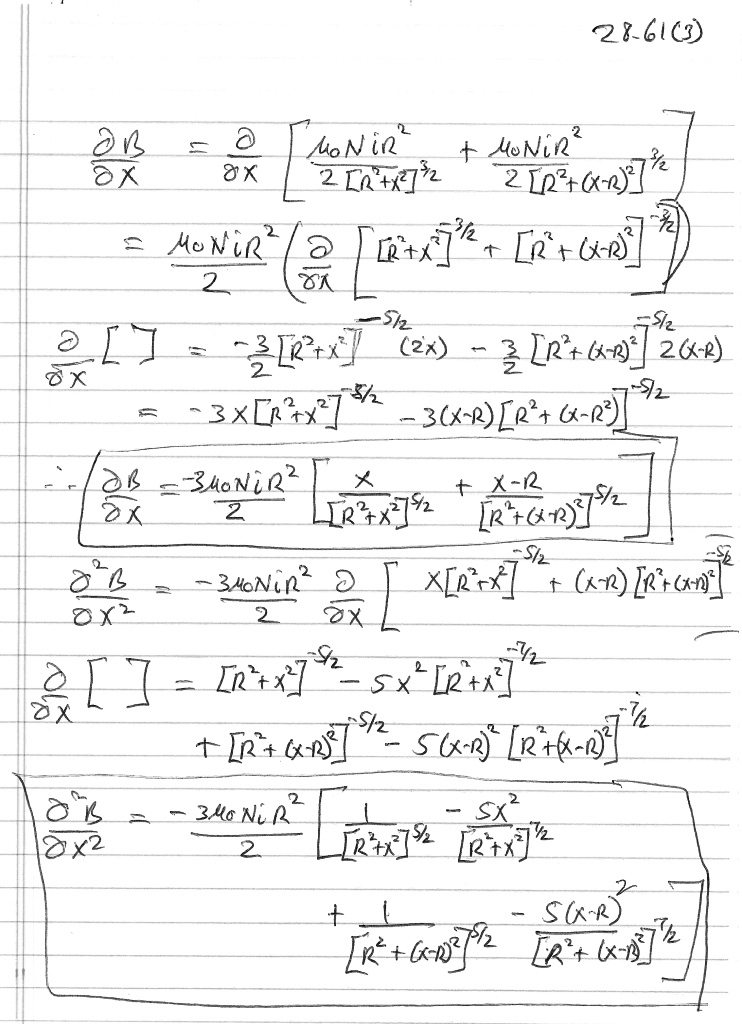 28-61(3)
∂B/∂x = ∂/∂x [ μ₀NiR²/2[R²+x²]^3/2 + μ₀NiR²/2[R²+(x-R)²]^3/2 ]
= μ₀NiR²/2 ( ∂/∂x [ [R²+x²]^-3/2 + [R²+(x-R)²]^-3/2 ] )
∂/∂x [ ] = -3/2 [R²+x²]^-5/2 (2x) - 3/2 [R²+(x-R)²]^-5/2 2(x-R)
= -3x[R²+x²]^-5/2 - 3(x-R)[R²+(x-R²)]^-5/2
∴ ∂B/∂x = -3μ₀NiR²/2 [ x/[R²+x²]^5/2 + x-R/[R²+(x-R)²]^5/2 ]
∂²B/∂x² = -3μ₀NiR²/2 ∂/∂x [ x[R²+x²]^-5/2 + (x-R)[R²+(x-R)²]^-5/2
∂/∂x [ ] = [R²+x²]^-5/2 - 5x²[R²+x²]^-7/2
+ [R²+(x-R)²]^-5/2 - 5(x-R)²[R²+(x-R)²]^-7/2
∂²B/∂x² = -3μ₀NiR²/2 [ 1/[R²+x²]^5/2 - 5x²/[R²+x²]^7/2
+ 1/[R²+(x-R)²]^5/2 - 5(x-R)²/[R²+(x-R)²]^7/2 ]